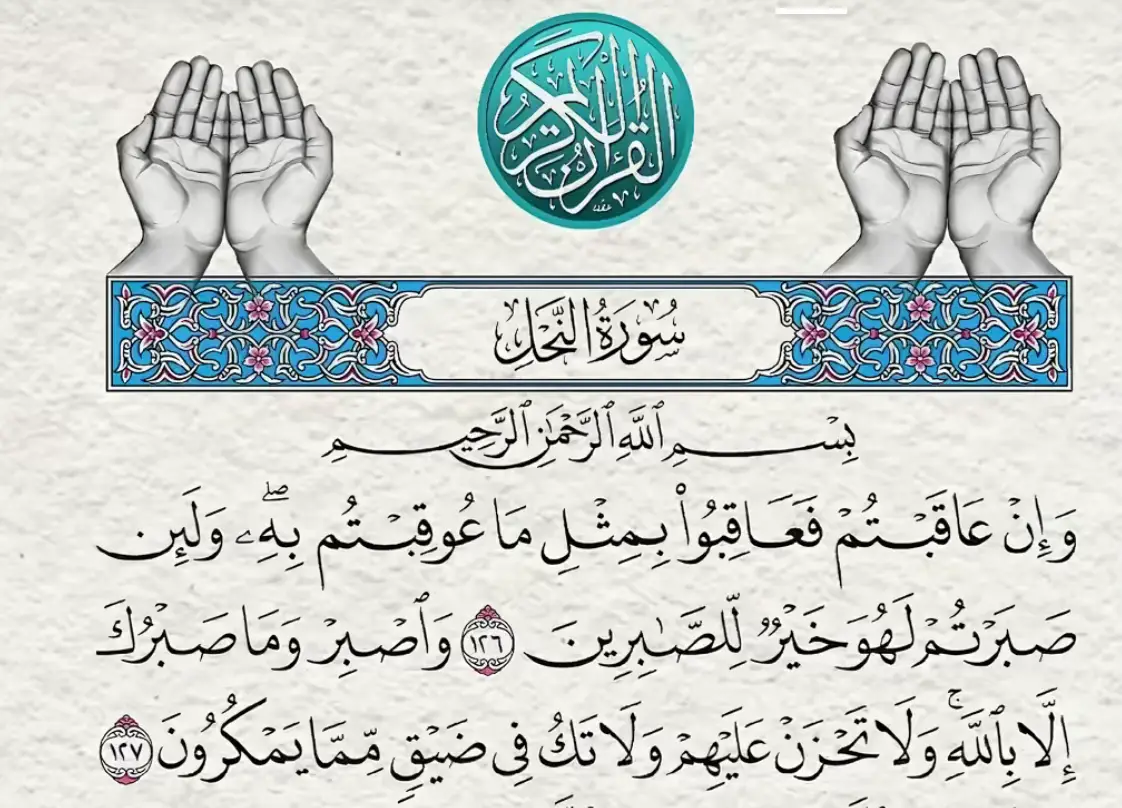 القرآن الكريم
سُورَةُ النَّحْلِ
بِسْمِ ٱللَّهِ ٱلرَّحْمَٰنِ ٱلرَّحِيمِ
وَإِنْ عَاقَبْتُمْ فَعَاقِبُوا۟ بِمِثْلِ مَا عُوقِبْتُم بِهِۦ ۖ وَلَئِن
صَبَرْتُمْ لَهُوَ خَيْرٌ لِّلصَّٰبِرِينَ ١٢٦ وَٱصْبِرْ وَمَا صَبْرُكَ
إِلَّا بِٱللَّهِ ۚ وَلَا تَحْزَنْ عَلَيْهِمْ وَلَا تَكُ فِى ضَيْقٍ مِّمَّا يَمْكُرُونَ ١٢٧